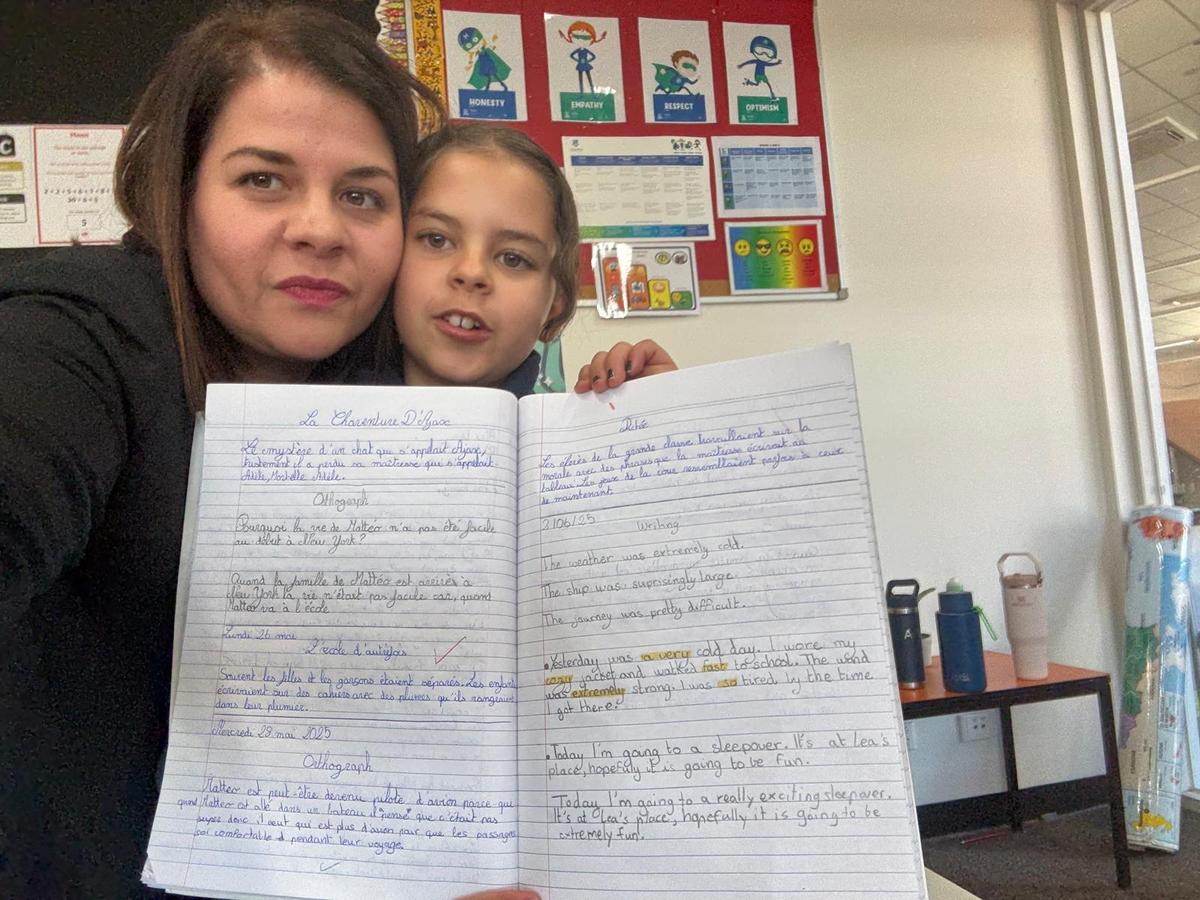 HONESTY
EMPATHY
RESPECT
OPTIMISM
La Charenture D'Ajax
Le mystère d'un chat qui s'appelait Ajax,
tristement il a perdu sa maîtresse qui s'appelait
Adèle, Mortelle Adèle.
Orthograph
Pourquoi la vie de Mattéo n'a pas été facile
au début à New York?
Quand la famille de Mattéo est arrivés à
New York la vie n'était pas facile car, quand
Mattéo va à l'école.
Lundi 26 mai
L'école d'autrefois
Souvent les filles et les garçons étaient séparés. Les enfants
écrivaient sur des cahiers avec des plumes qu'ils rangeaient
dans leur plumier.
Mercredi 28 mai 2025
Orthograph
Matteo est peut-être devenu pilote d'avion parce-que
quand Matteo est allé dans un bateau il pense que c'était pas
super donc il veut qui est plus d'avion pour que les passagers
soi comfortable d pendant leur voyage.
Dictée
Les élèves de la grande classe travaillaient sur la
morale avec des phrases que la maîtresse écrivait au
tableau. Les jeux de la cour ressemblaient parfois à ceux
de maintenant.
2/06/25 Writing
The weather was extremely cold.
The ship was suprisingly large.
The journey was pretty difficult.
• Yesterday was a very cold day. I wore my
cozy jacket and walked fast to school. The wind
was extremely strong. I was so tired by the time
I got there.
• Today I'm going to a sleepover. It's at Lea's
place, hopefully it is going to be fun.
Today I'm going to a really exciting sleepover.
It's at Lea's place, hopefully it is going to be
extremely fun!